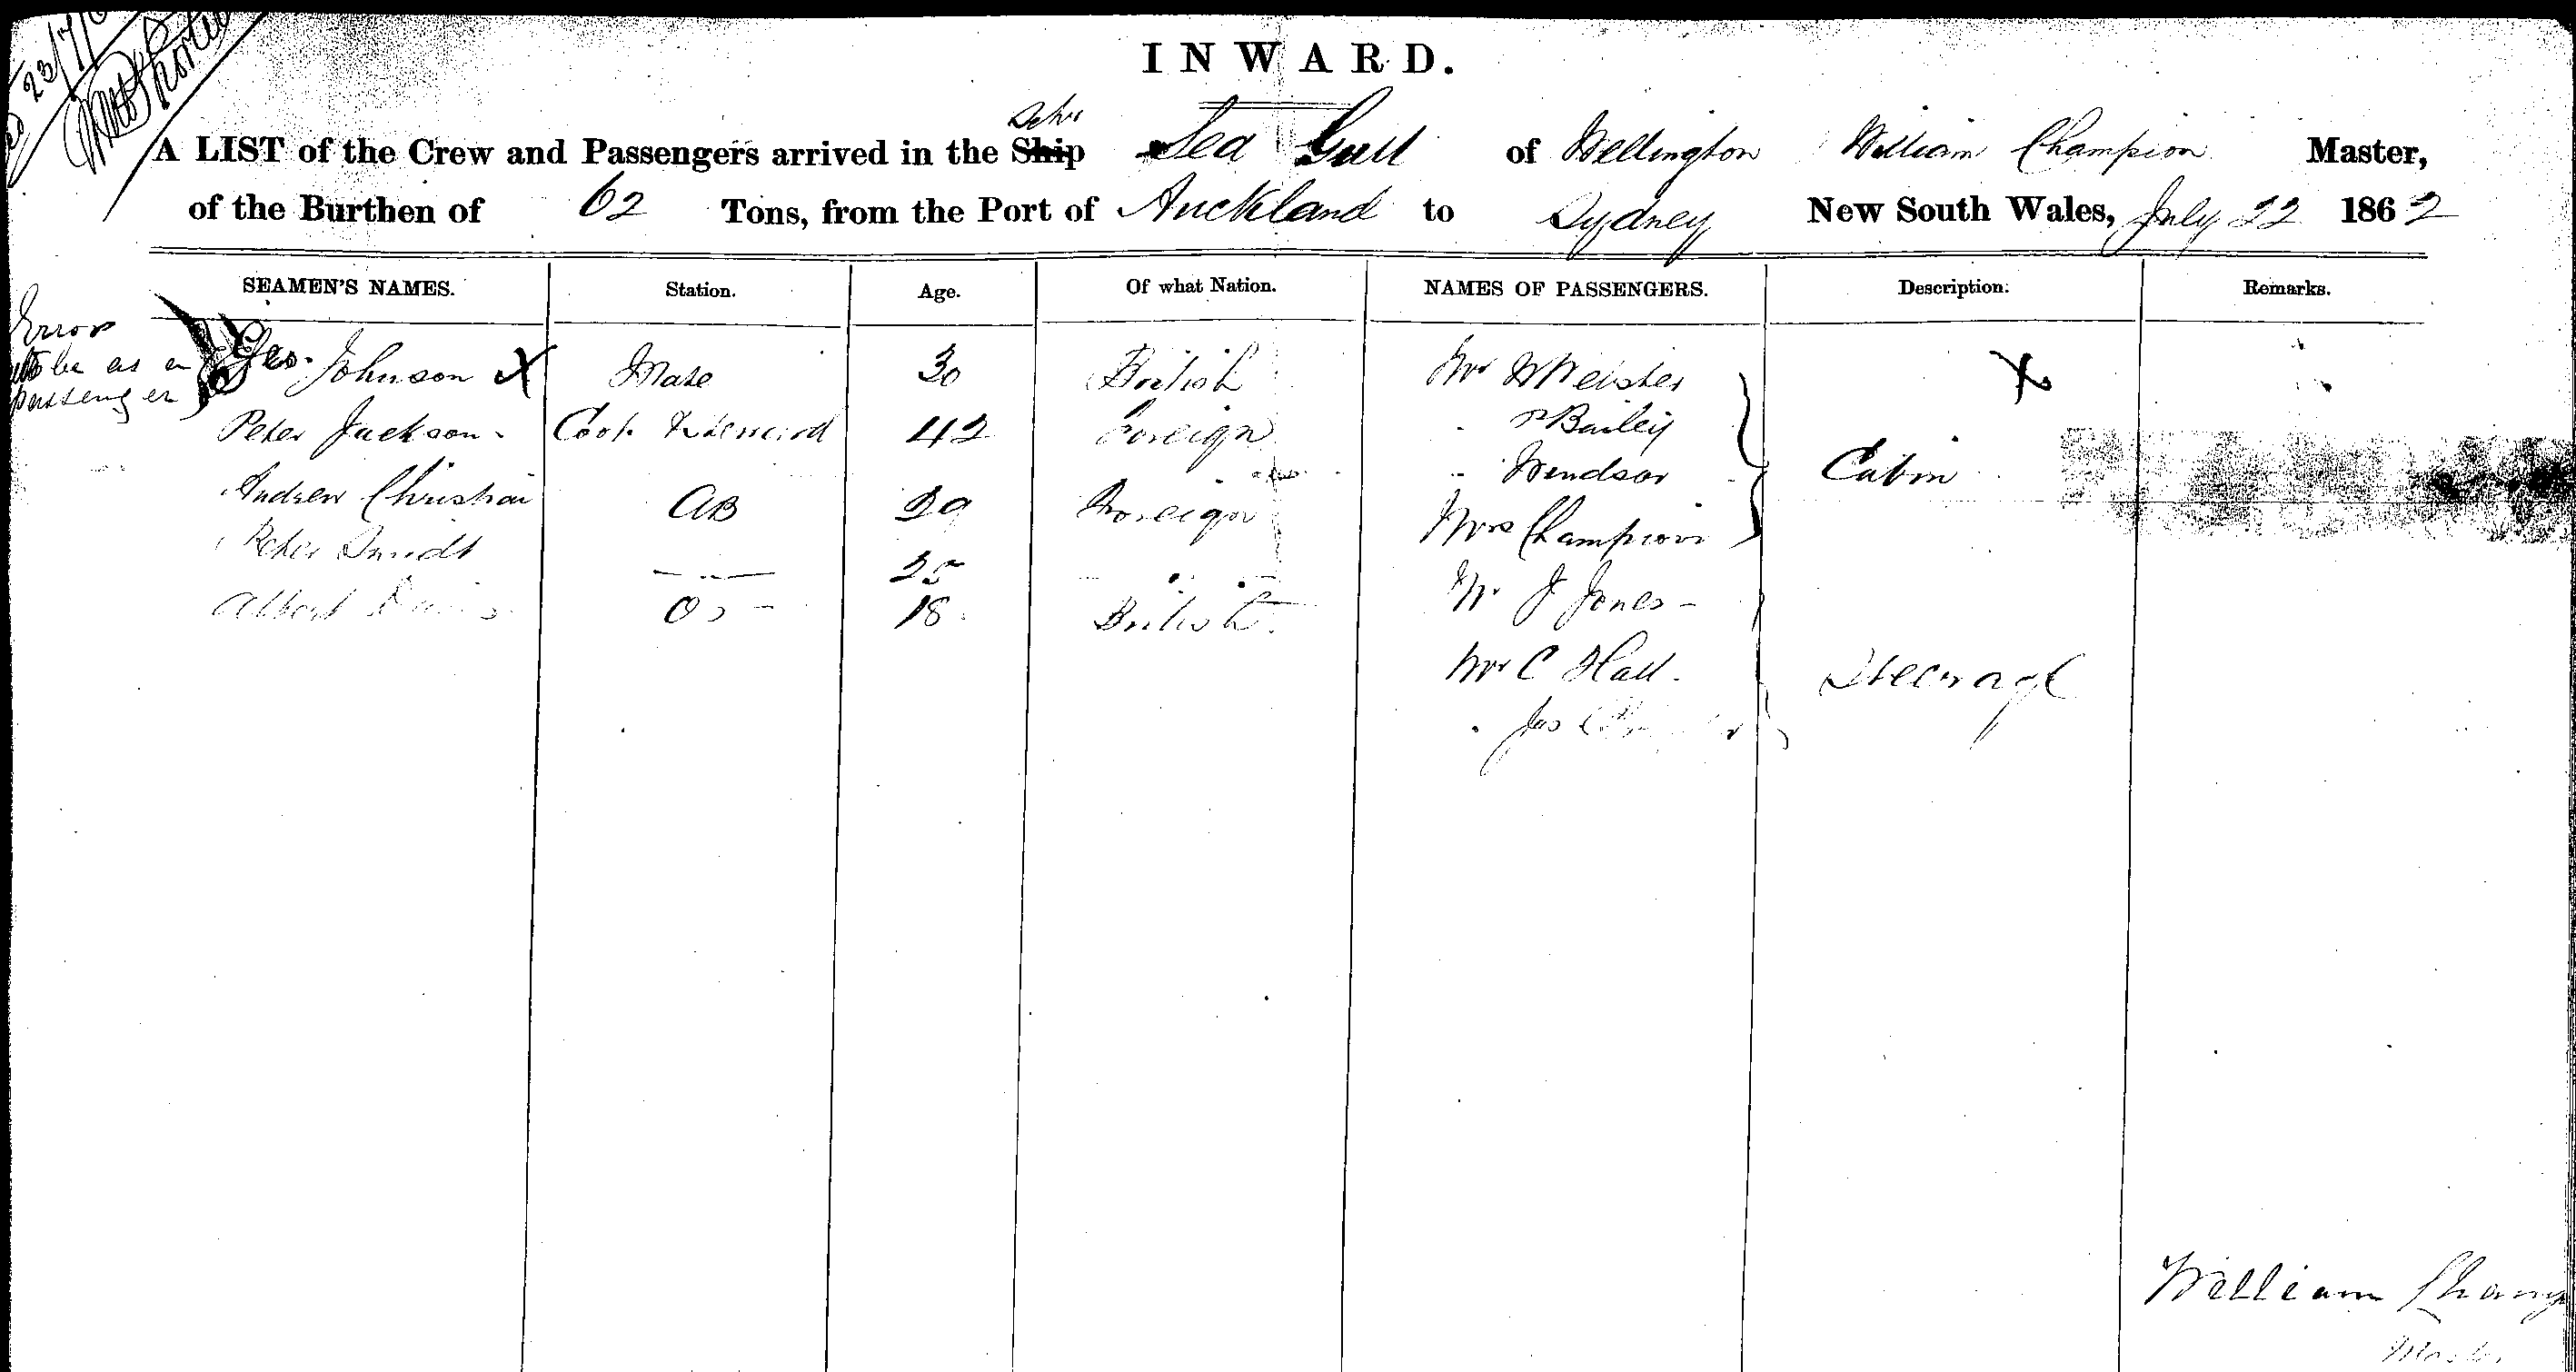 23/7/6
INWARD.
Schr
A LIST of the Crew and Passengers arrived in the Ship Sea Gull of Wellington William Champion Master,
of the Burthen of 62 Tons, from the Port of Auckland to Sydney New South Wales, July 22 1862
SEAMEN'S NAMES. Station. Age. Of what Nation. NAMES OF PASSENGERS. Description. Remarks.
Error
to be as a
passenger
Geo. Johnson X Mate 30 British Mr W Webster X
Peter Jackson Cook & Steward 42 Foreign " Bailey
Andrew Christian AB 29 Foreign " Windsor Cabin
Peter Smidt — " — 25 " " Mrs Champion
Albert OS 18 British Mr J Jones
Mr C Hall Steerage
" Jas
William Champ
Master